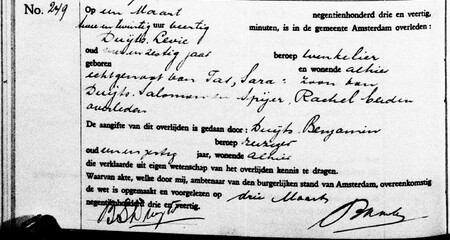 No. 249
Op een Maart negentienhonderd drie en veertig,
twee en twintig uur veertig minuten, is in de gemeente Amsterdam overleden:
Duijts, Levie
oud een en zestig jaar beroep winkelier
geboren en wonende alhier
echtgenoot van Tas, Sara: zoon van
Duijts, Salomon en Spijer, Rachel, beiden
overleden
De aangifte van dit overlijden is gedaan door: Duijts, Benjamin
beroep reiziger
oud een en jaar, wonende alhier
die verklaarde uit eigen wetenschap van het overlijden kennis te dragen.
Waarvan akte, welke door mij, ambtenaar van den burgerlijken stand van Amsterdam, overeenkomstig
de wet is opgemaakt en voorgelezen op drie Maart
negentienhonderd drie en veertig.